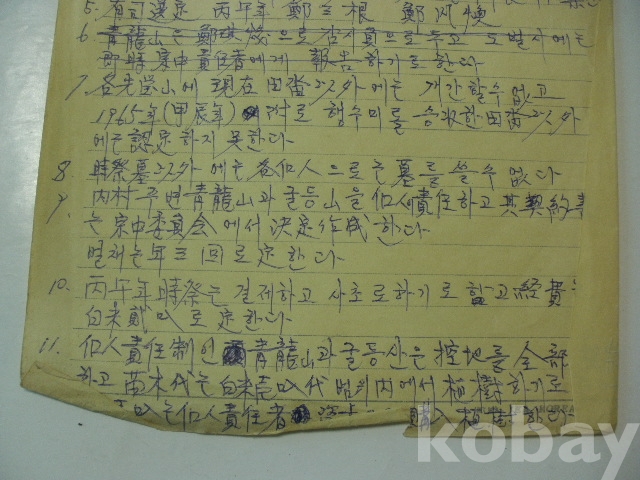 5. 有司選定 丙午年 鄭三根 鄭
6 青龍山은 鄭 으로 감시員으로 두고 도벌시에는
即時 宗中責任者에게 報告하기로 한다
7. 各先塋山에 現在田畓 以外에는 개간할수 없고
1965年(甲辰年) 附로 행수미를 승収한 田畓 以外
에는 認定하지 못한다
8. 時祭墓 以外에는 各個人으로는 墓를 쓸 수 없다
9. 内村 주변 青龍山과 굴등山을 個人責任하고 其契約書
는 宗中委員会에서 決定作成한다
벌채는 年 三回로 定한다
10. 丙午年 時祭는 결제하고 사초로 하기로 하고 経費는
白米貳叺로 定한다
11. 個人責任制인 青龍山과 굴등산은 控地를 全部
하고 苗木代는 白米壱叺代 범위内에서 植樹하기로
는 個人責任者 購入 植樹한다
kobay